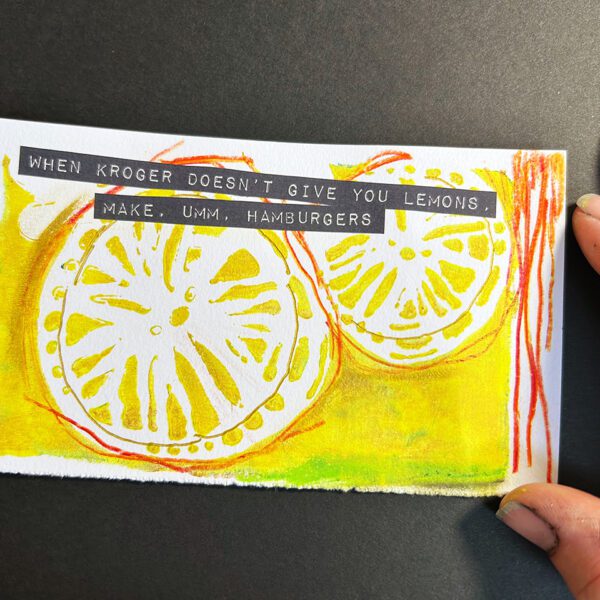 WHEN KROGER DOESN'T GIVE YOU LEMONS,
MAKE, UMM, HAMBURGERS